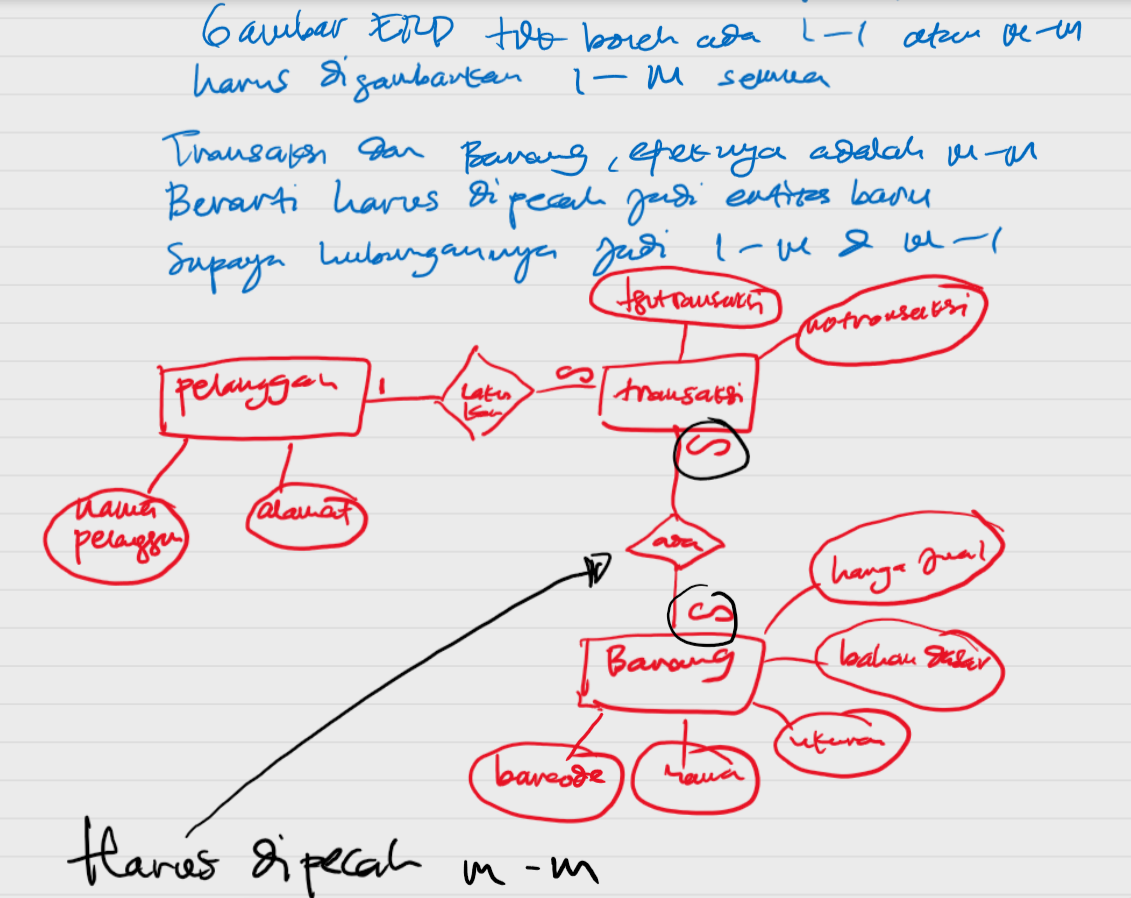 Gambar ERD tdk boleh ada 1-1 atau m-m
harus digambarkan 1-M semua
Transaksi dan Barang, efeknya adalah m-m
Berarti harus dipecah jadi entitas baru
Supaya hubungannya jadi 1-m & m-1
tgltransaksi
notransaksi
pelanggan
1
laku
kan
transaksi
nama
pelanggan
alamat
ada
harga jual
Barang
bahan dasar
ukuran
barcode
nama
Harus dipecah m-m